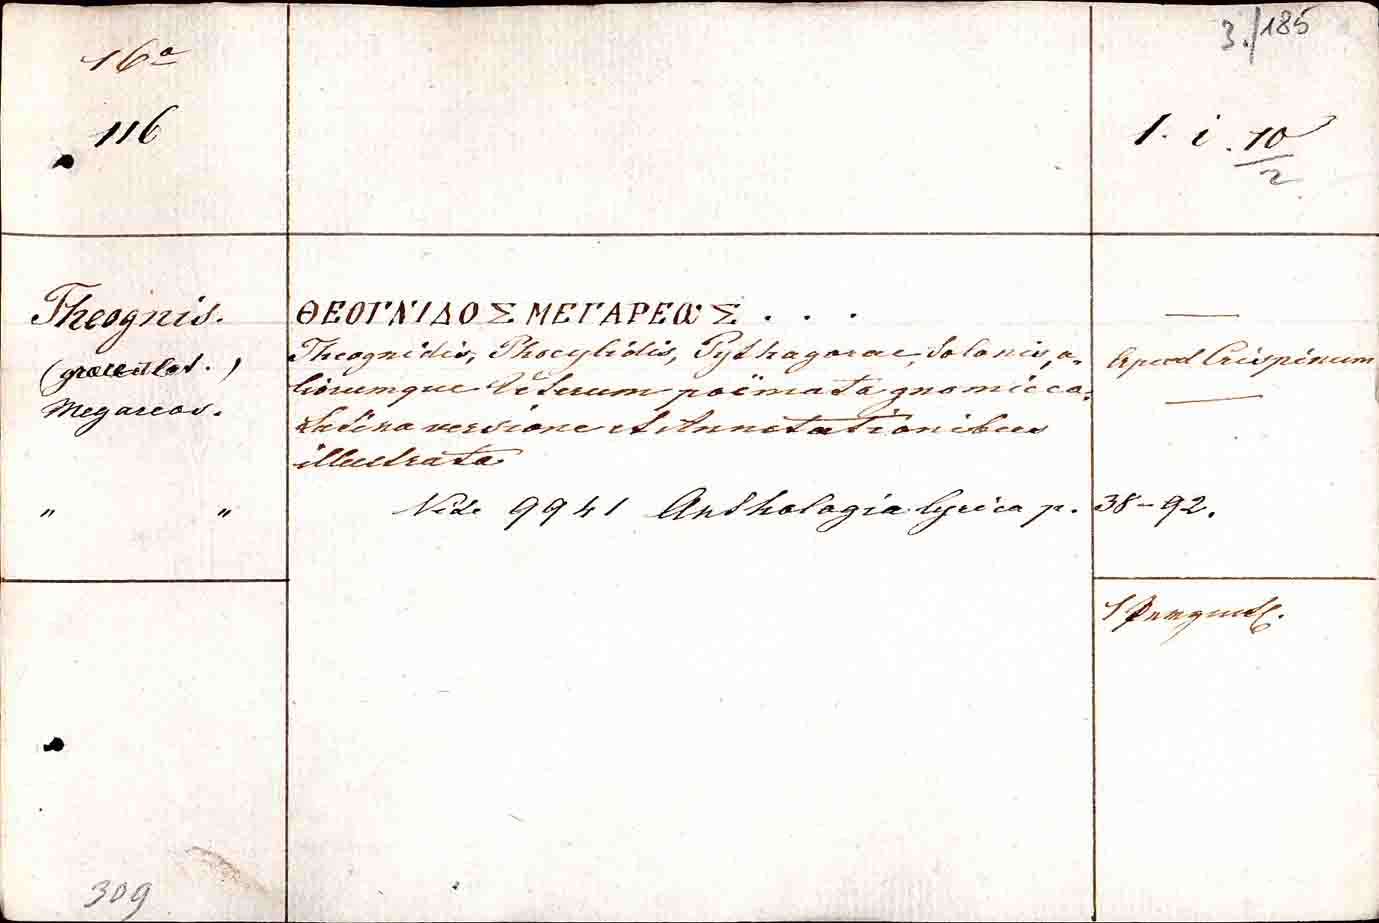 16a
116
3./185
1. i. 10/2
Theognis.
(graece et lat.)
Megareos.
ΘΕΟΓΝΙΔΟΣ ΜΕΓΑΡΕΩΣ . . .
Theognidis, Phocylidis, Pythagorae, Solonis, a-
liorumque Veterum poëmata gnomicca:
Latina versione et Annotationibus
illustrata
— 
Apud Crispinum
—
" " Vide 9941 Anthologia lyrica p. 38-92.
309